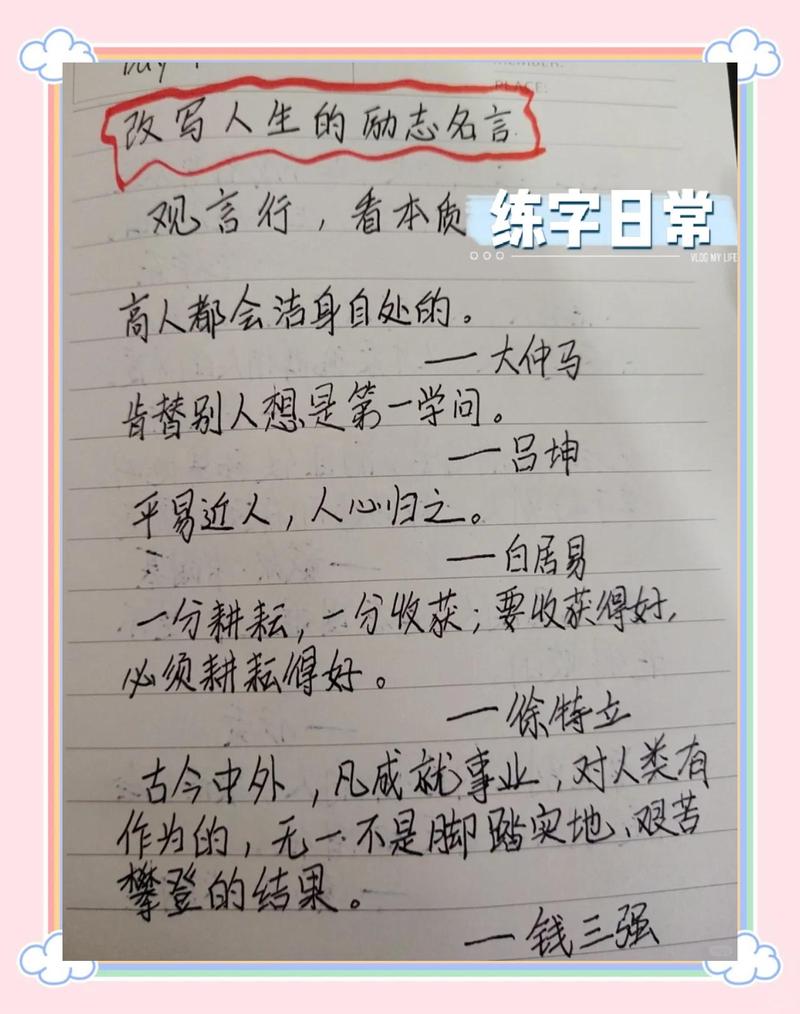 Day 1
MEMBER:
PLACE:
改写人生的励志名言
观言行，看本质
练字日常
VLOG MY LIFE
高人都会洁身自处的。
一大仲马
肯替别人想是第一学问。
一吕坤
平易近人，人心归之。
一白居易
一分耕耘，一分收获；要收获得好，
必须耕耘得好。
一徐特立
古今中外，凡成就事业，对人类有
作为的，无一不是脚踏实地、艰苦
攀登的结果。
一钱三强